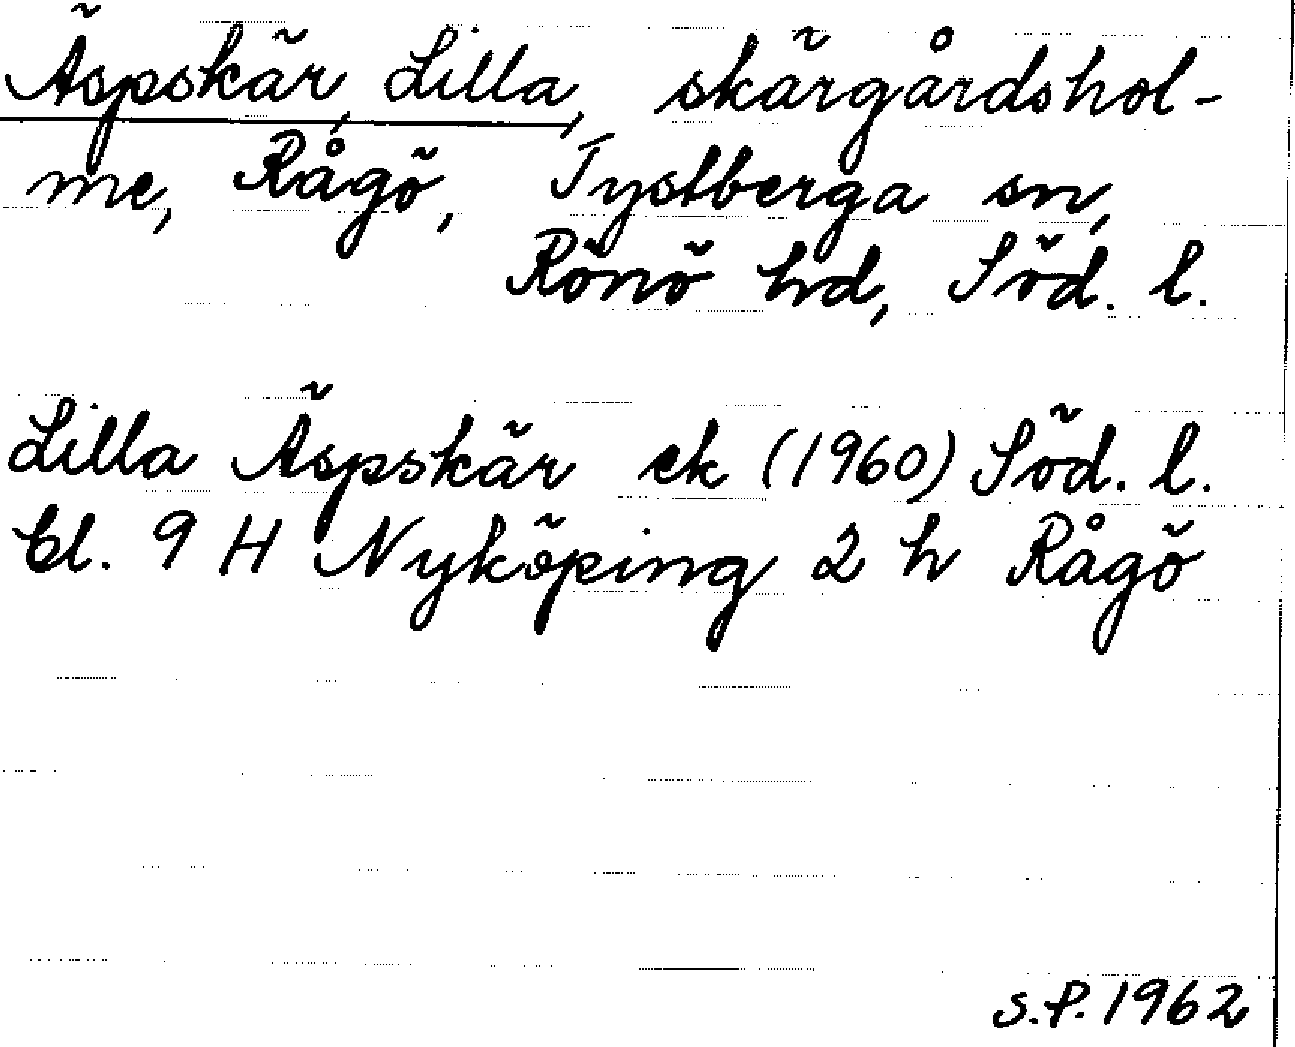 Äspskär, Lilla, skärgårdshol-
me, Rågö, Tystberga sn,
Rönö hd, Söd. l.
Lilla Äspskär ek (1960) Söd. l.
bl. 9 H Nyköping 2 h Rågö
S.P. 1962